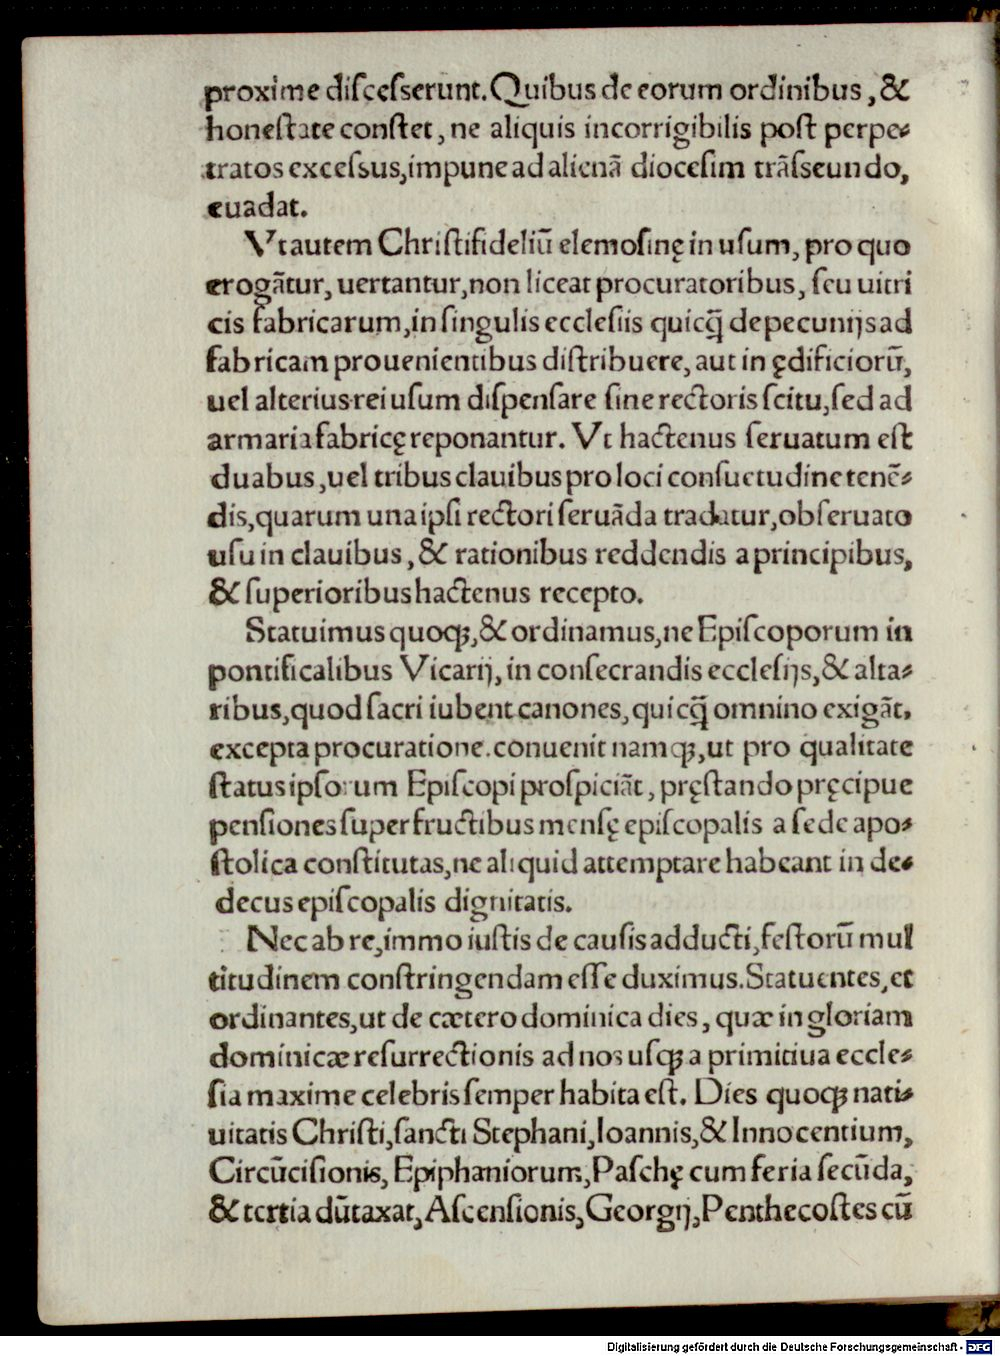 proxime diſceſserunt. Quibus de eorum ordinibus, &
honeſtate conſtet, ne aliquis incorrigibilis poſt perpe-
tratos exceſsus, impune ad alienā dioceſim trāſseundo,
euadat.
Vt autem Chriſtifideliū elemoſinę in uſum, pro quo
erogātur, uertantur, non liceat procuratoribus, ſeu uitri
cis fabricarum, in ſingulis eccleſiis quicq̄ de pecunijs ad
fabricam prouenientibus diſtribuere, aut in ędificiorū,
uel alterius rei uſum diſpenſare ſine rectoris ſcitu, ſed ad
armaria fabricę reponantur. Vt hactenus ſeruatum eſt
duabus, uel tribus clauibus pro loci conſuetudine tenē-
dis, quarum una ipſi rectori ſeruāda tradatur, obſeruato
uſu in clauibus, & rationibus reddendis a principibus,
& ſuperioribus hactenus recepto.
Statuimus quoqꝫ, & ordinamus, ne Epiſcoporum in
pontificalibus Vicarij, in conſecrandis eccleſijs, & alta-
ribus, quod ſacri iubent canones, quicq̄ omnino exigāt,
excepta procuratione. conuenit namqꝫ, ut pro qualitate
ſtatus ipſorum Epiſcopi proſpiciāt, pręſtando pręcipue
penſiones ſuper fructibus menſę epiſcopalis a ſede apo-
ſtolica conſtitutas, ne aliquid attemptare habeant in de-
decus epiſcopalis dignitatis.
Nec ab re, immo iuſtis de cauſis adducti, feſtorū mul
titudinem conſtringendam eſſe duximus. Statuentes, et
ordinantes, ut de cætero dominica dies, quæ in gloriam
dominicæ reſurrectionis ad nos uſqꝫ a primitiua eccle-
ſia maxime celebris ſemper habita eſt. Dies quoqꝫ nati-
uitatis Chriſti, ſancti Stephani, Ioannis, & Innocentium,
Circūciſionis, Epiphaniorum, Paſchę cum feria ſecūda,
& tertia dūtaxat, Aſcenſionis, Georgij, Penthecoſtes cū
Digitalisierung gefördert durch die Deutsche Forschungsgemeinschaft - DFG